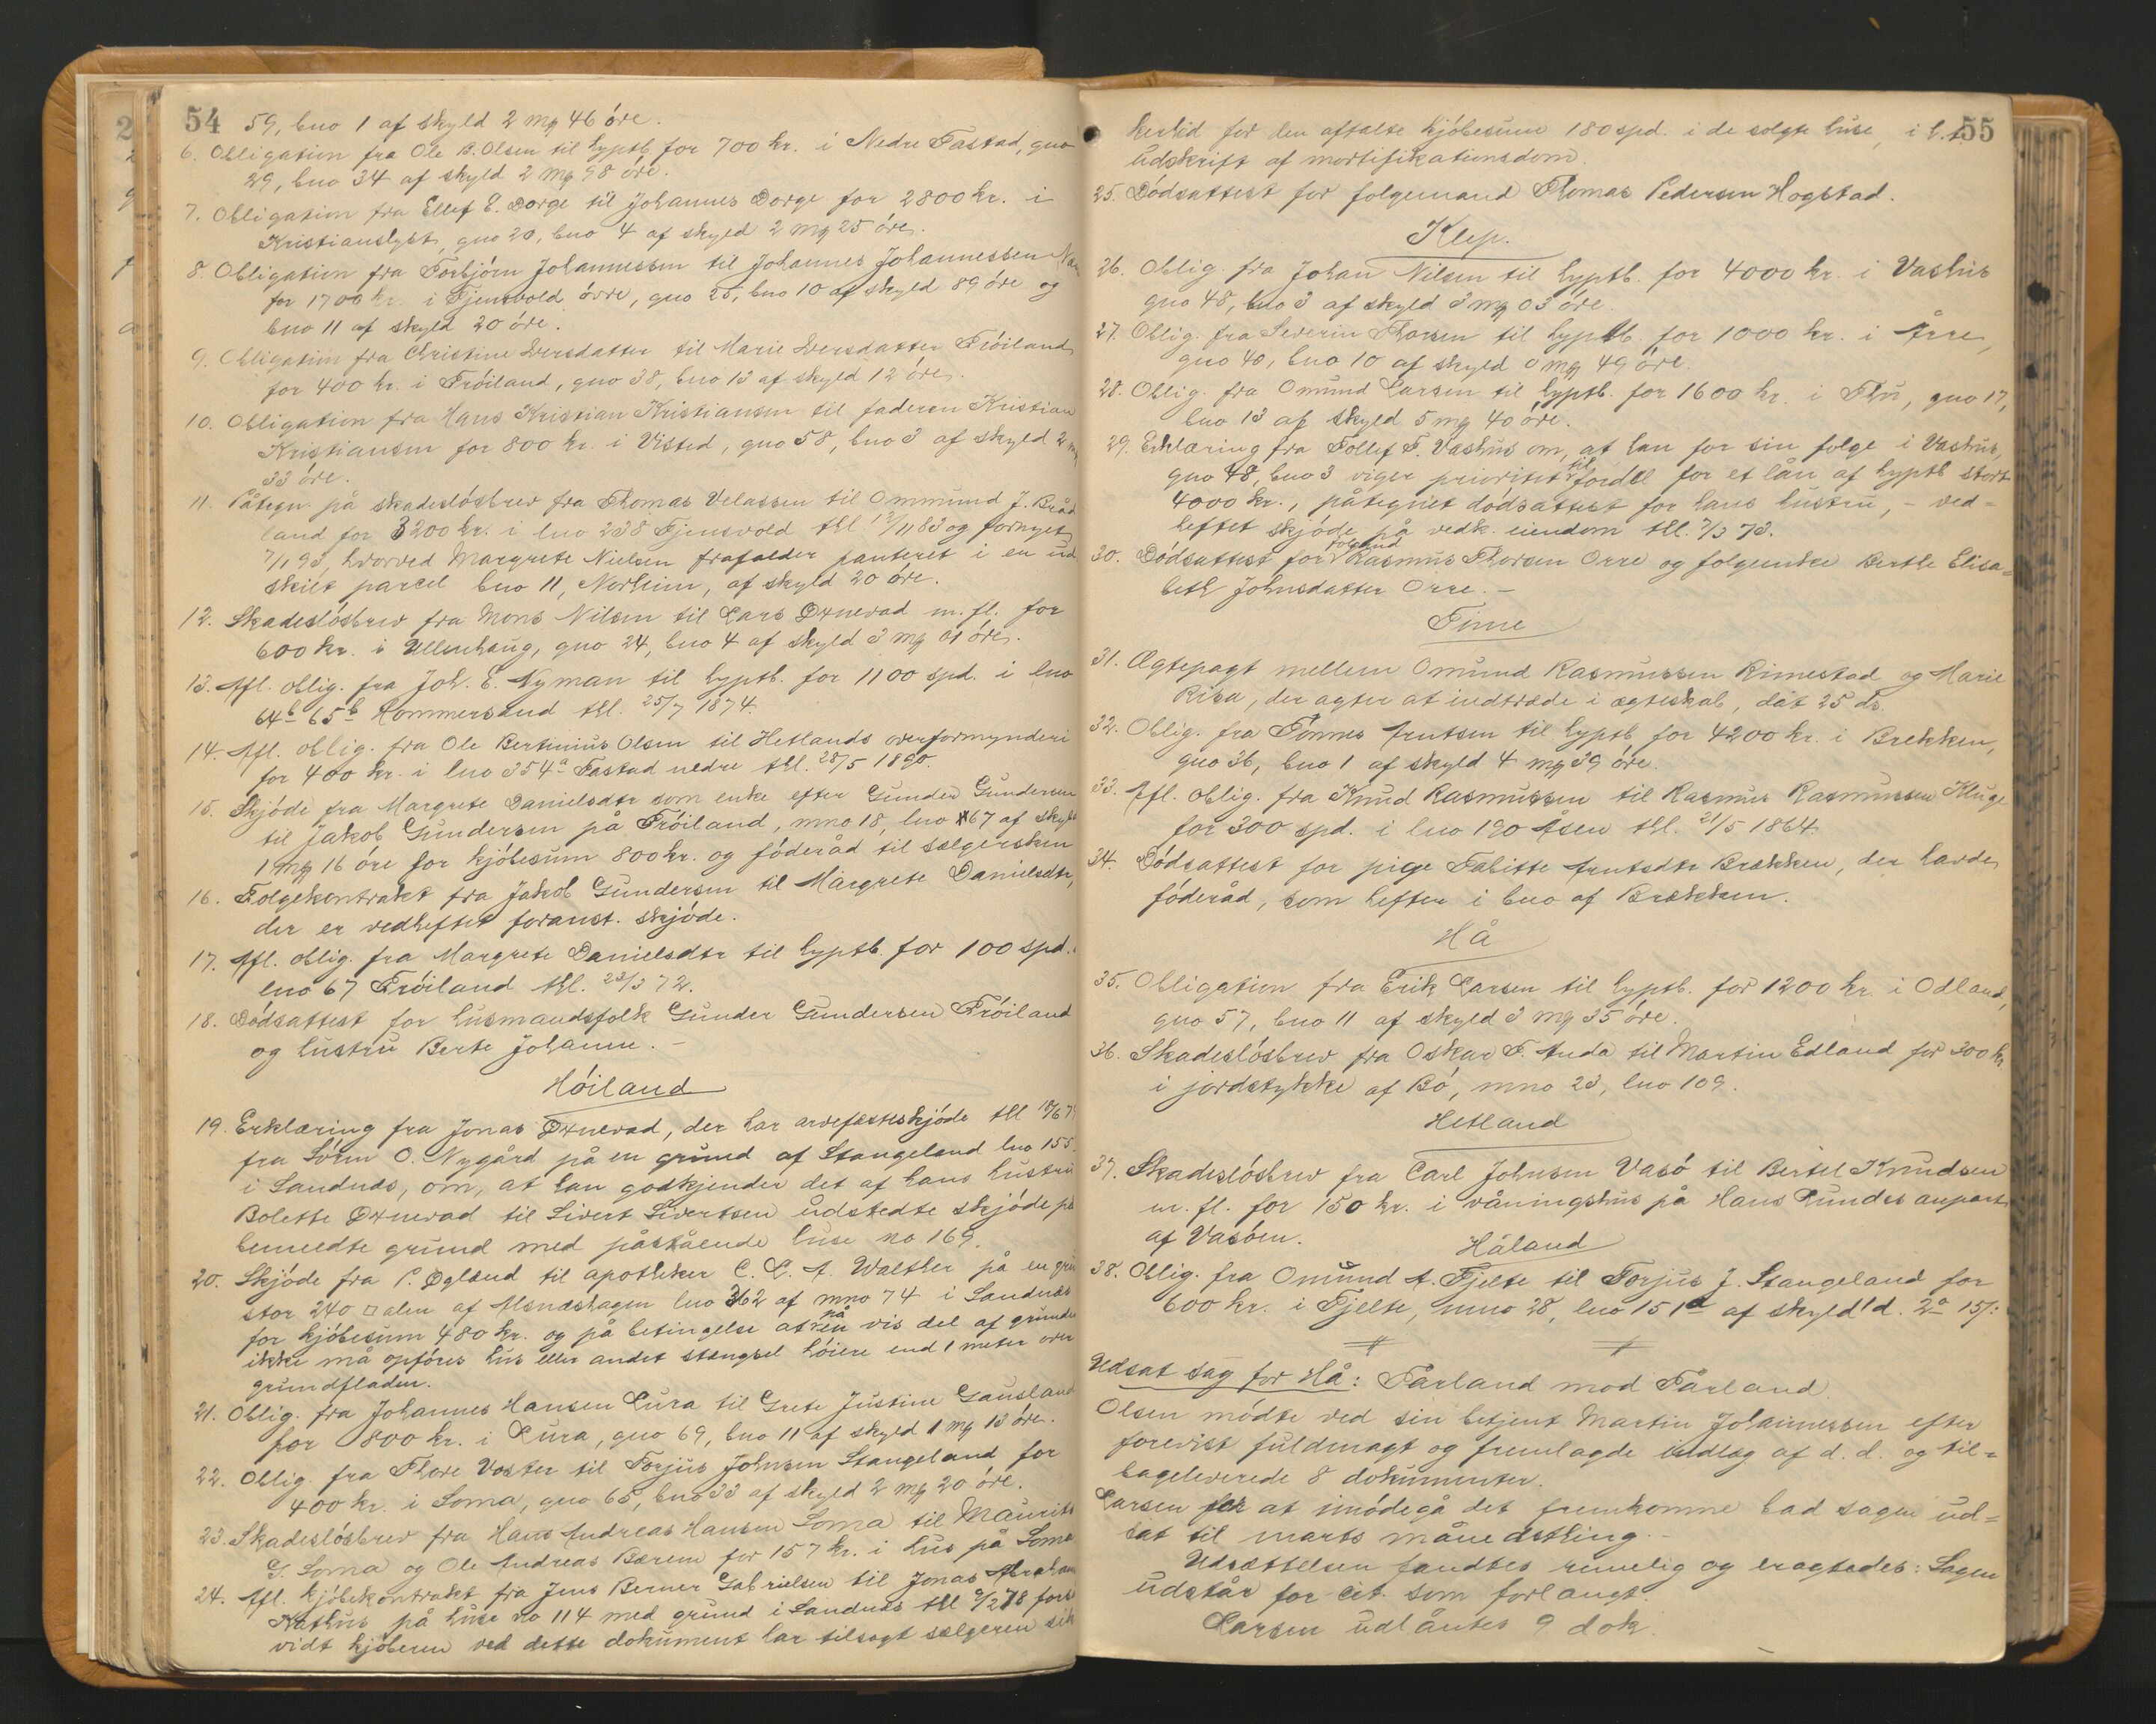 54
59, bno 1 af skyld 2 mg 46 öre.
6. Obligation fra Ole B. Olsen til hyptb. for 700 kr. i Nedre Tastad, gno
29, bno 34 af skyld 2 mg 98 öre.
7. Obligation fra Ellef E. Dorge til Johannes Dorge for 2800 kr. i
Kristianslyst, gno 20, bno 4 af skyld 2 mg 25 öre.
8. Obligation fra Torbjörn Johannessen til Johannes Johannessen
for 1700 kr. i Tjensvold övre, gno 25, bno 10 af skyld 89 öre og
bno 11 af skyld 20 öre.
9. Obligation fra Christine Iversdatter til Marie Iversdatter Fröiland
for 400 kr. i Fröiland, gno 38, bno 13 af skyld 12 öre.
10. Obligation fra Hans Kristian Kristiansen til faderen Kristian
Kristiansen for 800 kr. i Visted, gno 58, bno 3 af skyld 2
33 öre.
11. Påtegn. på skadeslösbrev fra Thomas Velassen til Ommund J. Bråd
land for 3200 kr. i lno 238 Tjensvold thl. 12/11 83 og fornyet
7/1 93, hvorved Margrete Nielsen frafalder panteret i en ud
skilt parcel bno 11, Norheim, af skyld 20 öre.
12. Skadeslösbrev fra Mons Nilsen til Lars Öxnevad m. fl. for
600 kr. i Ullenhaug, gno 24, bno 4 af skyld 3 mg 01 öre.
13. Afl. oblig. fra Joh. E. Nyman til hyptb. for 1100 spd. i lno
64b 65b Hommersand thl. 25/7 1874.
14. Afl. oblig. fra Ole Bertinius Olsen til Hetlands overformynderi
for 400 kr. i lno 354a Tastad nedre thl. 28/5 1890.
15. Skjöde fra Margrete Danielsdtr som enke efter Gunder Gundersen
til Jakob Gundersen på Fröiland, mno 18, lno 67 af skyld
1 mg 16 öre for kjöbesum 800 kr. og föderåd til sælgersken
16. Folgekontrakt fra Jakob Gundersen til Margrete Danielsdtr,
der er vedheftet foranst. skjöde.
17. Afl. oblig. fra Margrete Danielsdtr til hyptb. for 100 spd. i
lno 67 Fröiland thl. 23/3 72.
18. Dödsattest for husmandsfolk Gunder Gundersen Fröiland
og hustru Berte Johanne. –
Höiland
19. Erklæring fra Jonas Öxnevad, der har arvefæsteskjöde thl 18/6 7
fra Sören O. Nygård på en grund af Stangeland lno 155
i Sandnæs, om, at han godkjender det af hans hustru
Bolette Öxnevad til Sivert Sivertsen udstedte skjöde på
bemeldte grund med påstående huse no 169.
20. Skjöde fra P. Ögland til apotheker C. L. A. Walther på en gru
stor 240 □ alen af Mendshagen lno 362 af mno 74 i Sandnæs
for kjöbesum 480 kr. og på betingelse at på en vis del af grunden
ikke må opföres hus eller andet stængsel höiere end 1 meter over
grundfladen.
21. Oblig. fra Johannes Hansen Lura til Grete Justine Gausland
for 800 kr. i Lura, gno 69, bno 11 af skyld 1 mg 13 öre.
22. Oblig. fra Thore Voster til Torjus Johnsen Stangeland for
400 kr. i Soma, gno 65, bno 33 af skyld 2 mg 20 öre.
23. Skadeslösbrev fra Hans Andreas Hansen Soma til Maurits
G. Soma og Ole Andreas Bærem for 157 kr. i hus på Soma
24. Afl. kjöbekontrakt fra Jens Berner Gabrielsen til Jonas Abraham
Nathus på huse no 114 med grund i Sandnæs thl 2/2 78 forså
vidt kjöberen ved dette dokument har tilsagt sælgeren sik
55
kerhed for den aftalte kjöbesum 180 spd. i de solgte huse, i h. t.
udskrift af mortifikationsdom.
25. Dödsattest for folgemand Thomas Pedersen Hogstad.
Klep.
26. Oblig. fra Johan Nilsen til hyptb. for 4000 kr. i Vashus
gno 48, bno 3 af skyld 3 mg 03 öre.
27. Oblig. fra Severin Thorsen til hyptb. for 1000 kr. i Årre,
gno 40, bno 10 af skyld 0 mg 49 öre.
28. Oblig. fra Omund Larsen til hyptb. for 1600 kr. i Thu, gno 17,
bno 13 af skyld 5 mg 40 öre.
29. Erklæring fra Tollef T. Vashus om, at han for sin folge i Vashus,
gno 48, bno 3 viger prioritet til fordel for et lån af hyptb stort
4000 kr., påtegnet dödsattest for hans hustru, – ved=
heftet skjöde på vedk. eiendom thl. 7/3 73.
30. Dödsattest for folgmd Rasmus Thorsen Orre og folgeenke Berthe Elisa=
beth Johnsdatter Orre. –
Time
31. Ægtepagt mellem Omund Rasmussen Rimestad og Marie
Risa, der agter at indtræde i ægteskab, dat 25 ds.
32. Oblig. fra Tönnes Arntsen til hyptb. for 4200 kr. i Brekken,
gno 36, bno 1 af skyld 4 mg 39 öre.
33. Afl. oblig. fra Knud Rasmussen til Rasmus Rasmussen Kluge
for 300 spd. i lno 190 Åsen thl. 21/5 1864.
34. Dödsattest for pige Tabitte Arntsdtr Brekken, der havde
föderåd, som hefter i bno af Brekken.
Hå
35. Obligation fra Erik Larsen til hyptb. for 1200 kr. i Odland,
gno 57, bno 11 af skyld 3 mg 35 öre.
36. Skadeslösbrev fra Oskar T. Auda til Martin Edland for 300 kr
i jordstykke af Bö, mno 23, lno 109.
Hetland
37. Skadeslösbrev fra Carl Johnsen Vasö til Bertel Knudsen
m. fl. for 150 kr. i våningshus på Hans Lundes anpart
af Vasöen.
Håland
38. Oblig. fra Omund A. Tjelte til Torjus J. Stangeland for
600 kr. i Tjelte, mno 28, lno 151a af skyld 1 d. 2 o 15/:
Udsat sag for Hå: Tårland mod Tårland.
Olsen mödte ved sin betjent Martin Johannessen efter
forevist fuldmagt og fremlagde indlæg af d. d. og til=
bageleverede 8 dokumenter.
Larsen for at imödegå det fremkomne bad sagen ud=
sat til marts månedsthing. –
Udsættelsen fandtes rimelig og eragtedes: Sagen
udstår for cit. som forlangt.
Larsen udlåntes 9 dok.